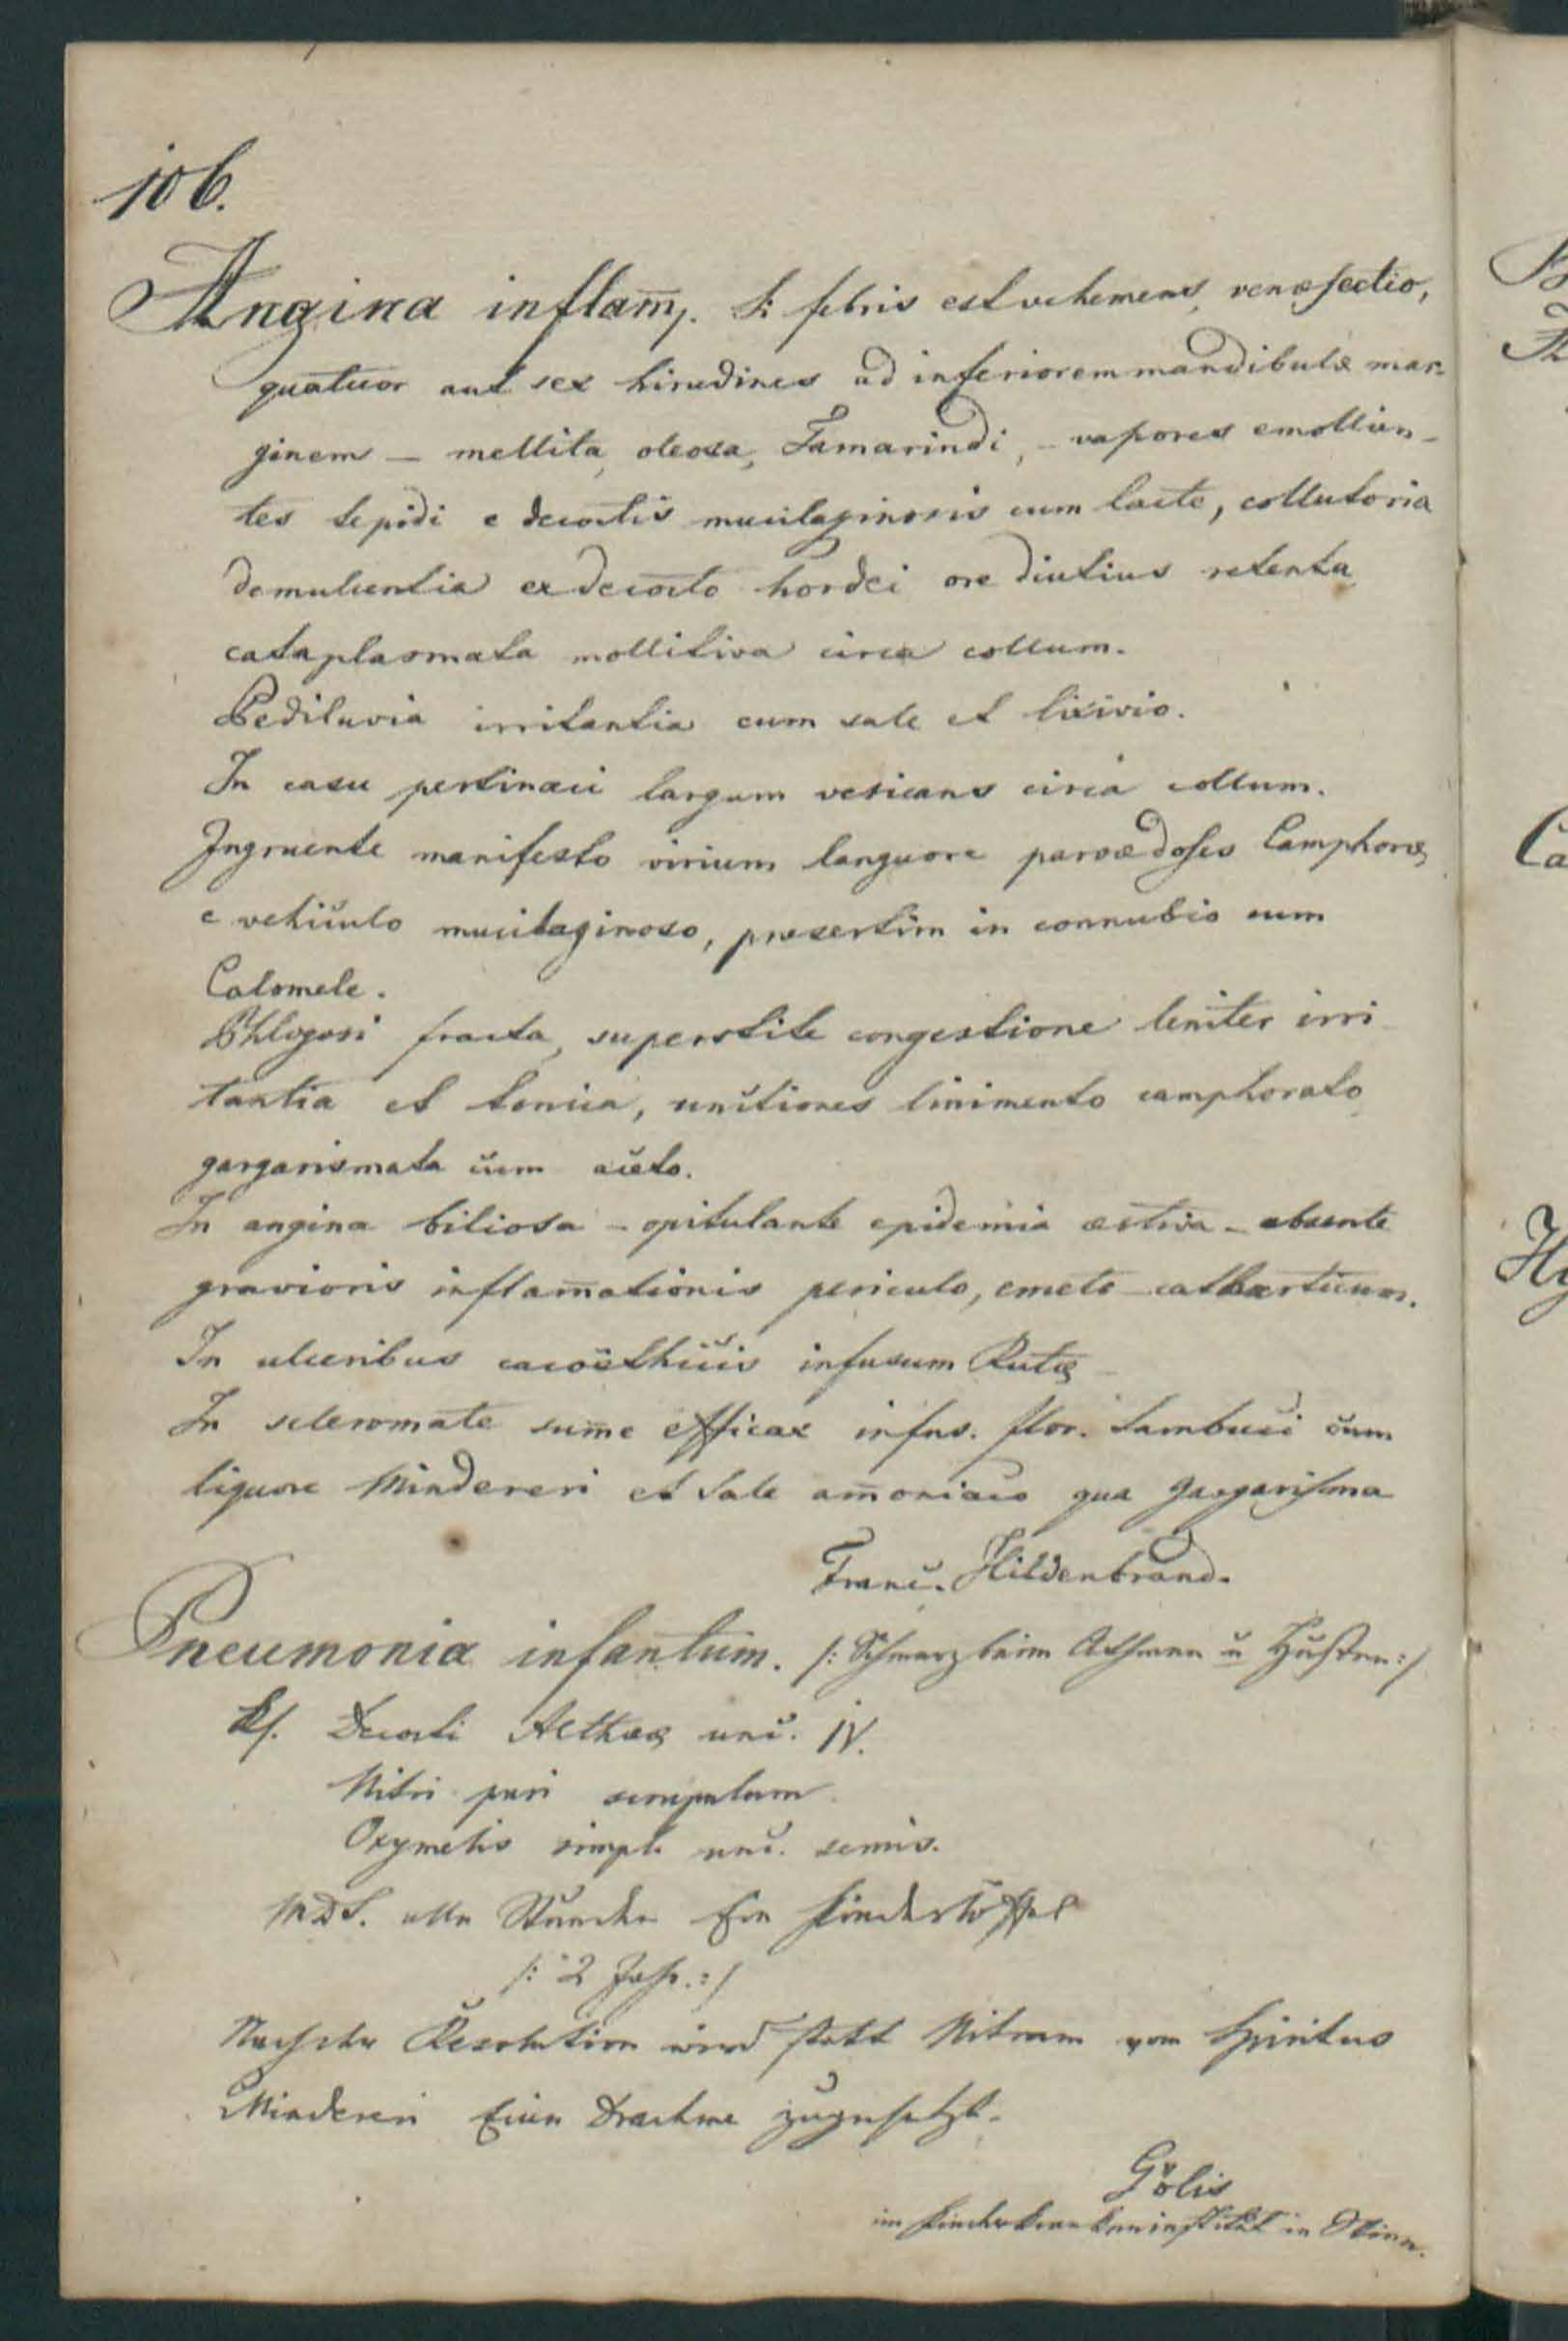 106.
Angina inflam̄. Si febris est vehemens, venæsectio,
quatuor aut sex hirudines ad inferiorem mandibulæ mar-
ginem — mellita, oleosa, Tamarindi, – vapores emollien-
tes tepidi e decoctis mucilaginosis cum lacte, collutoria
demulcentia ex decocto hordei ore diutius retenta
cataplasmata mollitiva circa collum.
Pediluvia irritantia cum sale et lixivio.
In casu pertinaci largum vesicans circa collum.
Ingruente manifesto virium languore parvæ doses Camphoræ
e vehiculo mucilaginoso, præsertim in connubio cum
Calomele.
Phlogosi fracta, superstite congestione leniter irri
tantia et tonica, unctiones linimento camphorato
gargarismata cum aceto.
In angina biliosa – opitulante epidemia æstiva – absente
gravioris inflam̄ationis periculo, emeto-catharticum.
In ulceribus cacoëthicis infusum Rutæ
In scleromate sum̄e efficax infus. flor. Sambuci cum
liquore Mindereri et Sale am̄oniaco qua gargarisma
Franc. Hildenbrand.
Pneumonia infantum. /: Schmerz beim Athmen u Husten :/
Rf. Decocti Altheæ unc. IV.
Nitri puri scrupulum
Oxymelis simpl. unc. semis.
MDS. alle Stunden Ein Kinderlöffel
/: 2 Jahr. :/
Nach der Resolution wird statt Nitrum vom Spiritus
Mindereri Eine Drachme zugesetzt.
Gölis
im Kinderkrankeninstitut in Wien.
B
Ca
Hy